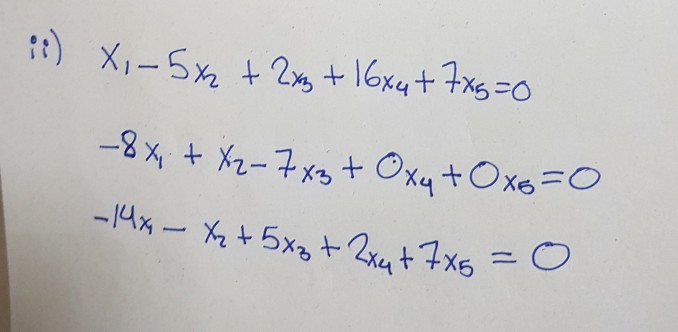 ii) x₁ - 5x₂ + 2x₃ + 16x₄ + 7x₅ = 0
-8x₁ + x₂ - 7x₃ + 0x₄ + 0x₅ = 0
-14x₁ - x₂ + 5x₃ + 2x₄ + 7x₅ = 0